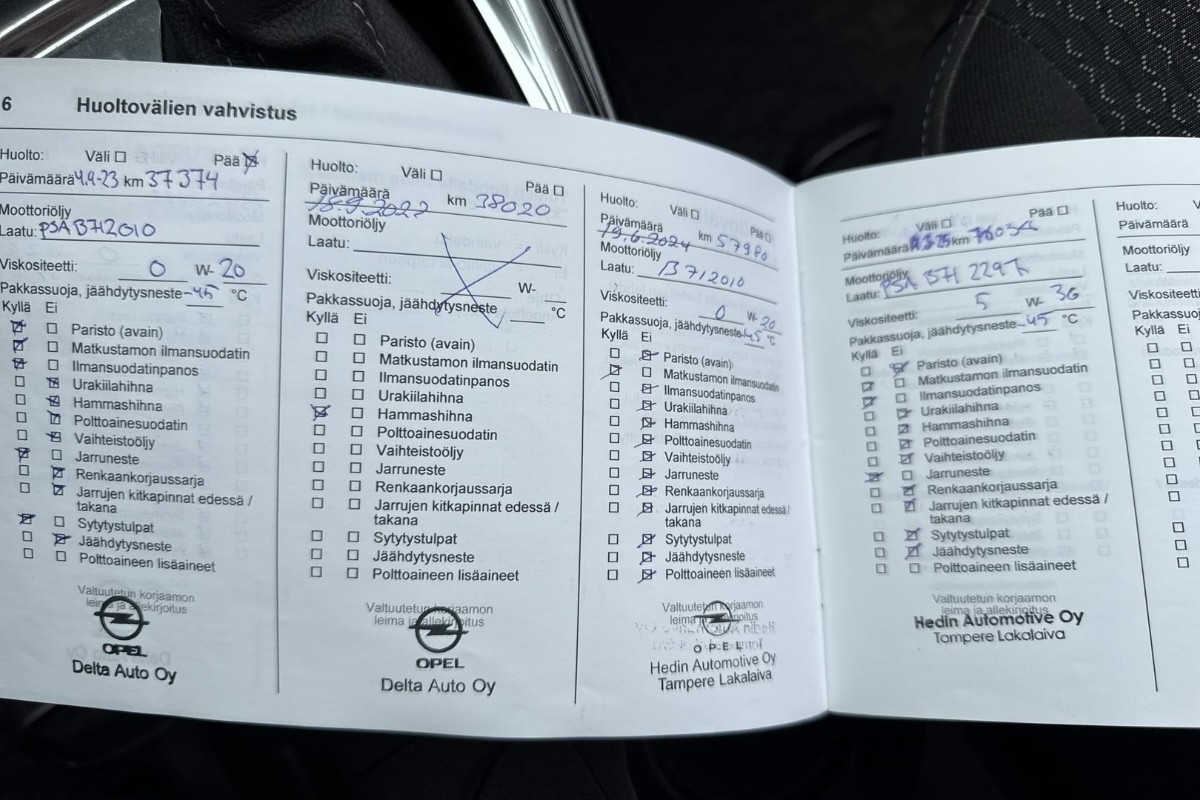 6 Huoltovälien vahvistus
Huolto: Väli Pää
Päivämäärä 4.9-23 km 37374
Moottoriöljy
Laatu: PSA B712010
Viskositeetti: 0 W- 20
Pakkassuoja, jäähdytysneste -45 °C
Kyllä Ei
Paristo (avain)
Matkustamon ilmansuodatin
Ilmansuodatinpanos
Urakiilahihna
Hammashihna
Polttoainesuodatin
Vaihteistoöljy
Jarruneste
Renkaankorjaussarja
Jarrujen kitkapinnat edessä /
takana
Sytytystulpat
Jäähdytysneste
Polttoaineen lisäaineet
Valtuutetun korjaamon
leima ja allekirjoitus
OPEL
Delta Auto Oy
Huolto: Väli Pää
Päivämäärä km 38020
Moottoriöljy
Laatu:
Viskositeetti: W-
Pakkassuoja, jäähdytysneste °C
Kyllä Ei
Paristo (avain)
Matkustamon ilmansuodatin
Ilmansuodatinpanos
Urakiilahihna
Hammashihna
Polttoainesuodatin
Vaihteistoöljy
Jarruneste
Renkaankorjaussarja
Jarrujen kitkapinnat edessä /
takana
Sytytystulpat
Jäähdytysneste
Polttoaineen lisäaineet
Valtuutetun korjaamon
leima ja allekirjoitus
OPEL
Delta Auto Oy
Huolto: Väli Pää
Päivämäärä 19.6.2024 km 57980
Moottoriöljy
Laatu: B712010
Viskositeetti: 0 W- 20
Pakkassuoja, jäähdytysneste -45 °C
Kyllä Ei
Paristo (avain)
Matkustamon ilmansuodatin
Ilmansuodatinpanos
Urakiilahihna
Hammashihna
Polttoainesuodatin
Vaihteistoöljy
Jarruneste
Renkaankorjaussarja
Jarrujen kitkapinnat edessä /
takana
Sytytystulpat
Jäähdytysneste
Polttoaineen lisäaineet
Valtuutetun korjaamon
leima ja allekirjoitus
OPEL
Hedin Automotive Oy
Tampere Lakalaiva
Huolto: Väli Pää
Päivämäärä km
Moottoriöljy
Laatu: PSA B71 2297
Viskositeetti: 5 W- 30
Pakkassuoja, jäähdytysneste -45 °C
Kyllä Ei
Paristo (avain)
Matkustamon ilmansuodatin
Ilmansuodatinpanos
Urakiilahihna
Hammashihna
Polttoainesuodatin
Vaihteistoöljy
Jarruneste
Renkaankorjaussarja
Jarrujen kitkapinnat edessä /
takana
Sytytystulpat
Jäähdytysneste
Polttoaineen lisäaineet
Valtuutetun korjaamon
leima ja allekirjoitus
Hedin Automotive Oy
Tampere Lakalaiva
Huolto:
Päivämäärä
Moottoriöljy
Laatu:
Kyllä Ei